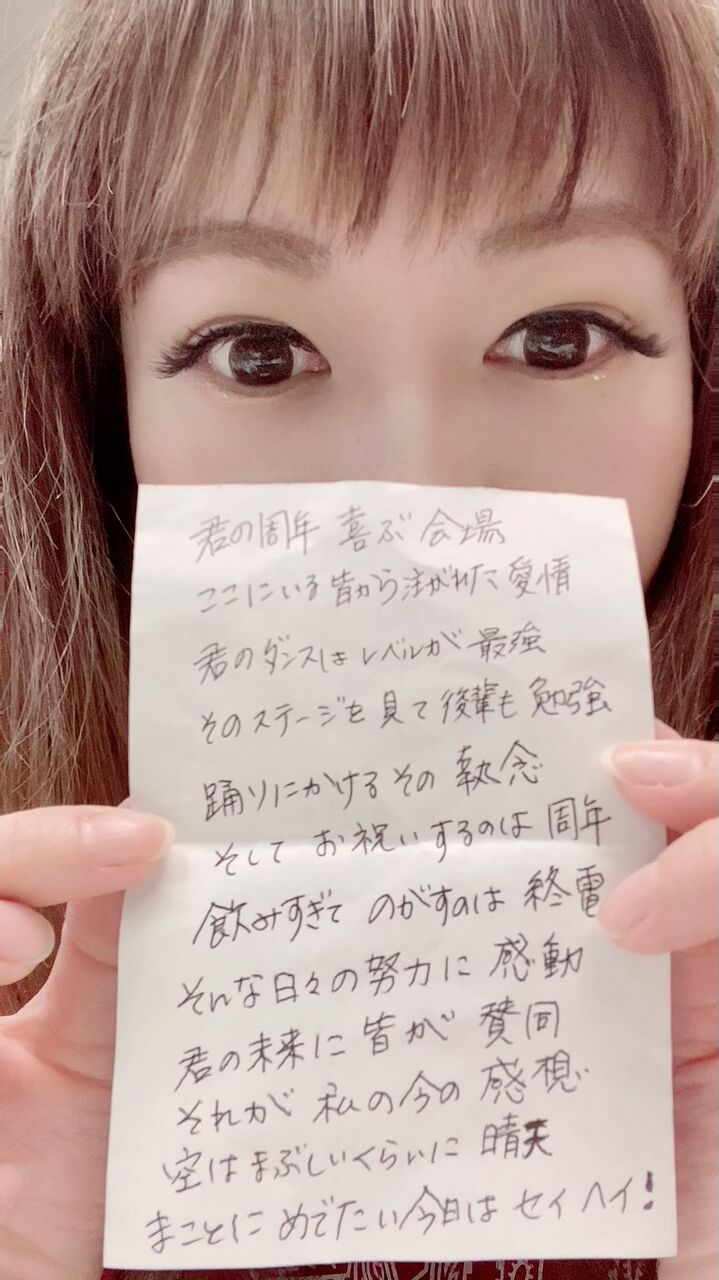 君の周年 喜ぶ 会場
ここにいる 皆から注がれた 愛情
君のダンスは レベルが 最強
そのステージを 見て 後輩も 勉強
踊りにかける その 執念
そして お祝いするのは 周年
飲みすぎて のがすのは 終電
そんな日々の努力に 感動
君の未来に 皆が 賛同
それが 私の今の 感想
空は まぶしいくらいに 晴天
まことに めでたい 今日は セイ ヘイ!